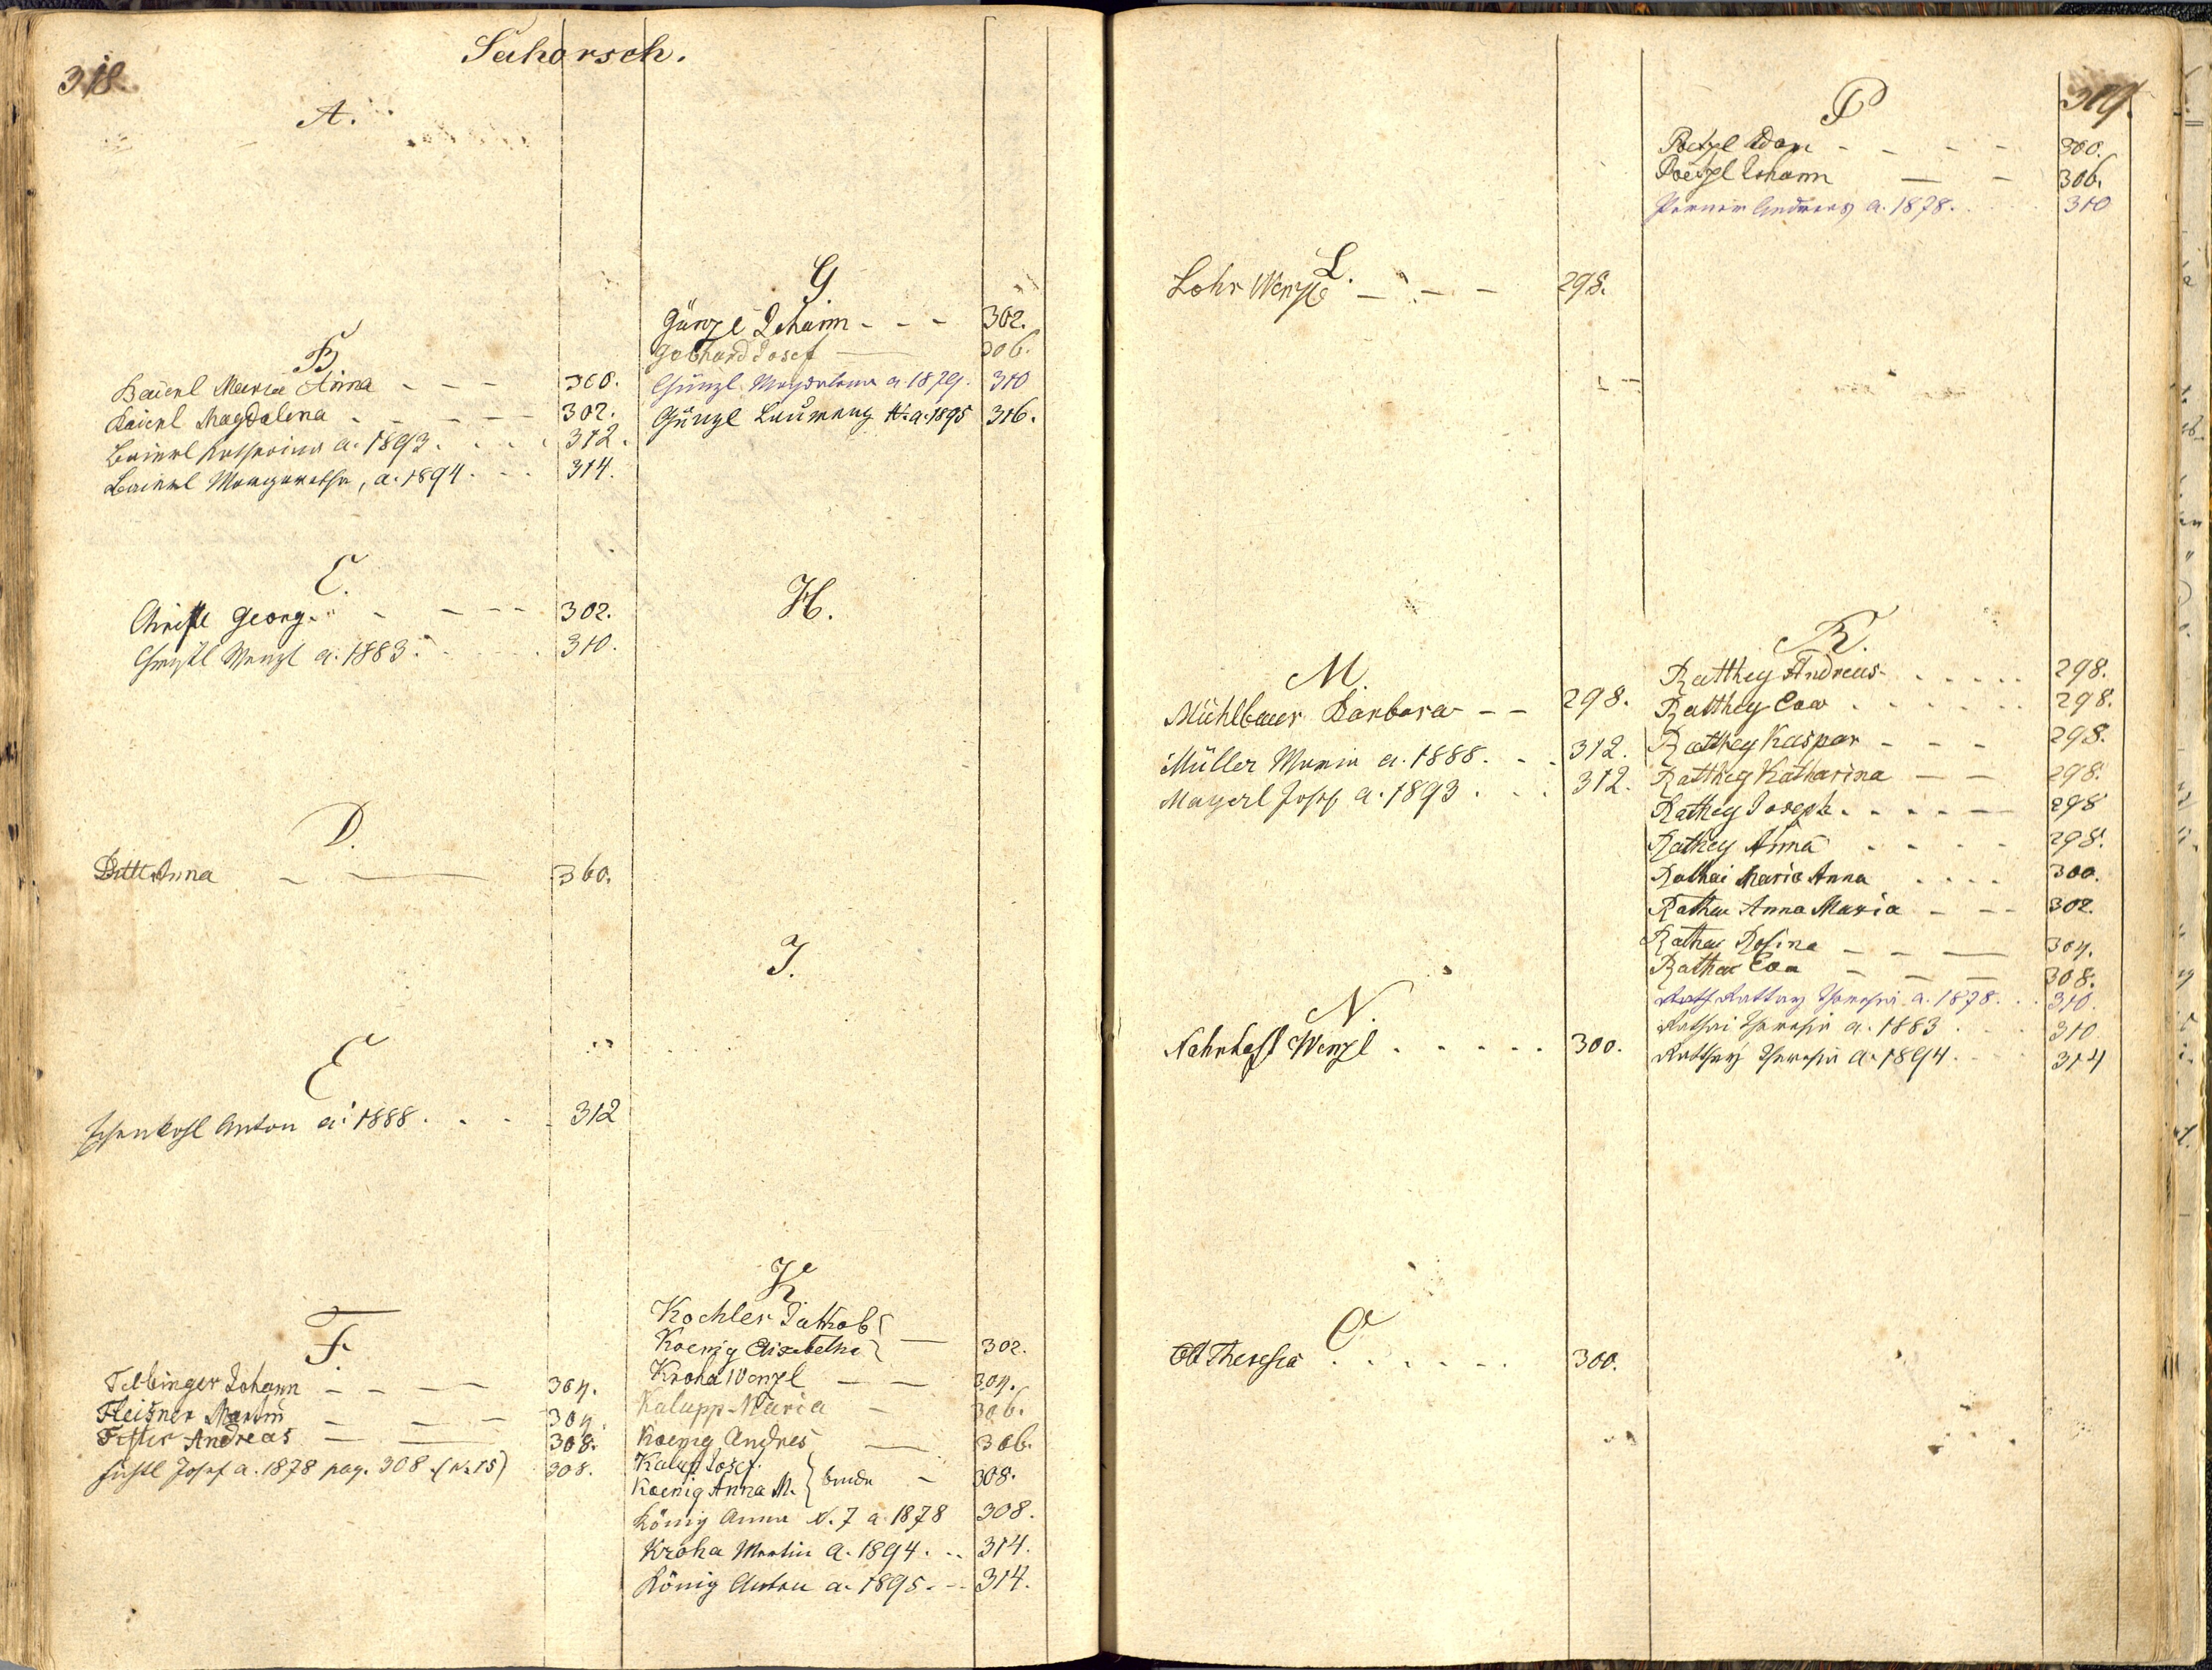 318.
Sahorsch.
A.
B
Baierl Maria Anna - - - 300.
Baierl Magdalena - - - - 302.
Baierl Katharina a. 1893. . . . 312.
Baierl Margaretha, a. 1894. . . 314.
C.
Christl Georg. - - - - 302.
Christl Wenzl a. 1883. . . . 310.
D.
Anna - — 300.
E
Eschenkohl Anton a. 1888. . . . 312
F.
Felbinger Johann - - - — 304.
Fleißner Martin - - - 304.
Andreas — — 308.
Füchtl Josef a. 1878 pag. 308. (N. 15) 308.
G
Günzl Johann - - - 302.
Gebhard Josef — 306.
Günzl Magdalena a. 1879. 310
Günzl Laurenz a. 1895 316.
H.
J.
K.
Kochler Jakob
Koenig Elisabetha } — 302.
Kroha Wenzl — — 304.
Kalupp Maria — 306.
Koenig Andres — 306.
Kalup Josef.
Koenig Anna M. } beide - 308.
König Anna N. 7 a. 1878 308.
Kroha Martin a. 1894. .. 314.
König Anton a. 1895. -- 314.
L.
Lohr Wenzl — - - 298.
M.
Mühlbauer Barbara - - 298.
Müller Maria a. 1888. . . 312.
Mayerl Josef a. 1893 . . . 312.
N.
Nahrhaft Wenzl . . . . . 300.
O
Theresia . . . . . . 300.
319.
P
Poetzl Adam - - - - 300.
Poetzl Johann — - 306.
Andreas a. 1878. . . 310
R.
Ratthey Andreas . . . . . 298.
Ratthey Eva . . . . . . 298.
Ratthey Kaspar - - - 298.
Ratthey Katharina — — 298.
Rathey Joseph . . . . — 298
Rathey Anna . . . . 298.
Rathai Maria Anna . . . . 300.
Rathai Anna Maria - - - 302.
Rathai Rosina - - — 304.
Rathai Eva - - — 308.
Rattay Theresia a. 1878. . . 310.
Rathai Theresia a. 1883 . . . 310
Rathay Theresia a. 1894. . . 314